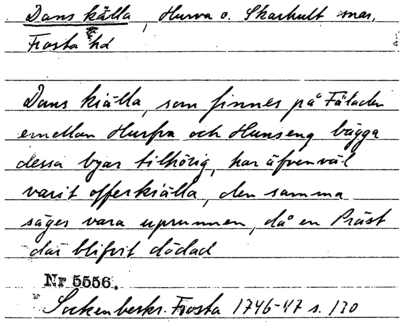 Dans källa, Hurva o. Skarhult snar,
Frosta hd
Dans kiälla, som finnes på Fäladen
emellan Hurfva och Hunseng bägga
dessa byar tilhörig, har äfvenväl
varit offerkiälla, den samma
säges vara uprunnen, då en Präst
där blifvit dödad
Nr 5556.
Sockenbeskr. Frosta 1746-47 s. 130